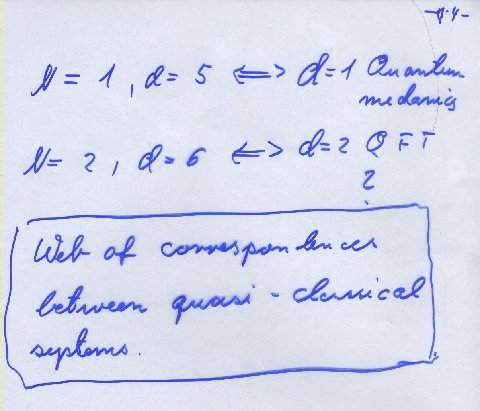 -9.4-
N = 1 , d = 5 <=> d=1 Quantum
mechanics
N= 2 , d=6 <=> d=2 QFT
?
Web of correspondences
between quasi-classical
systems.